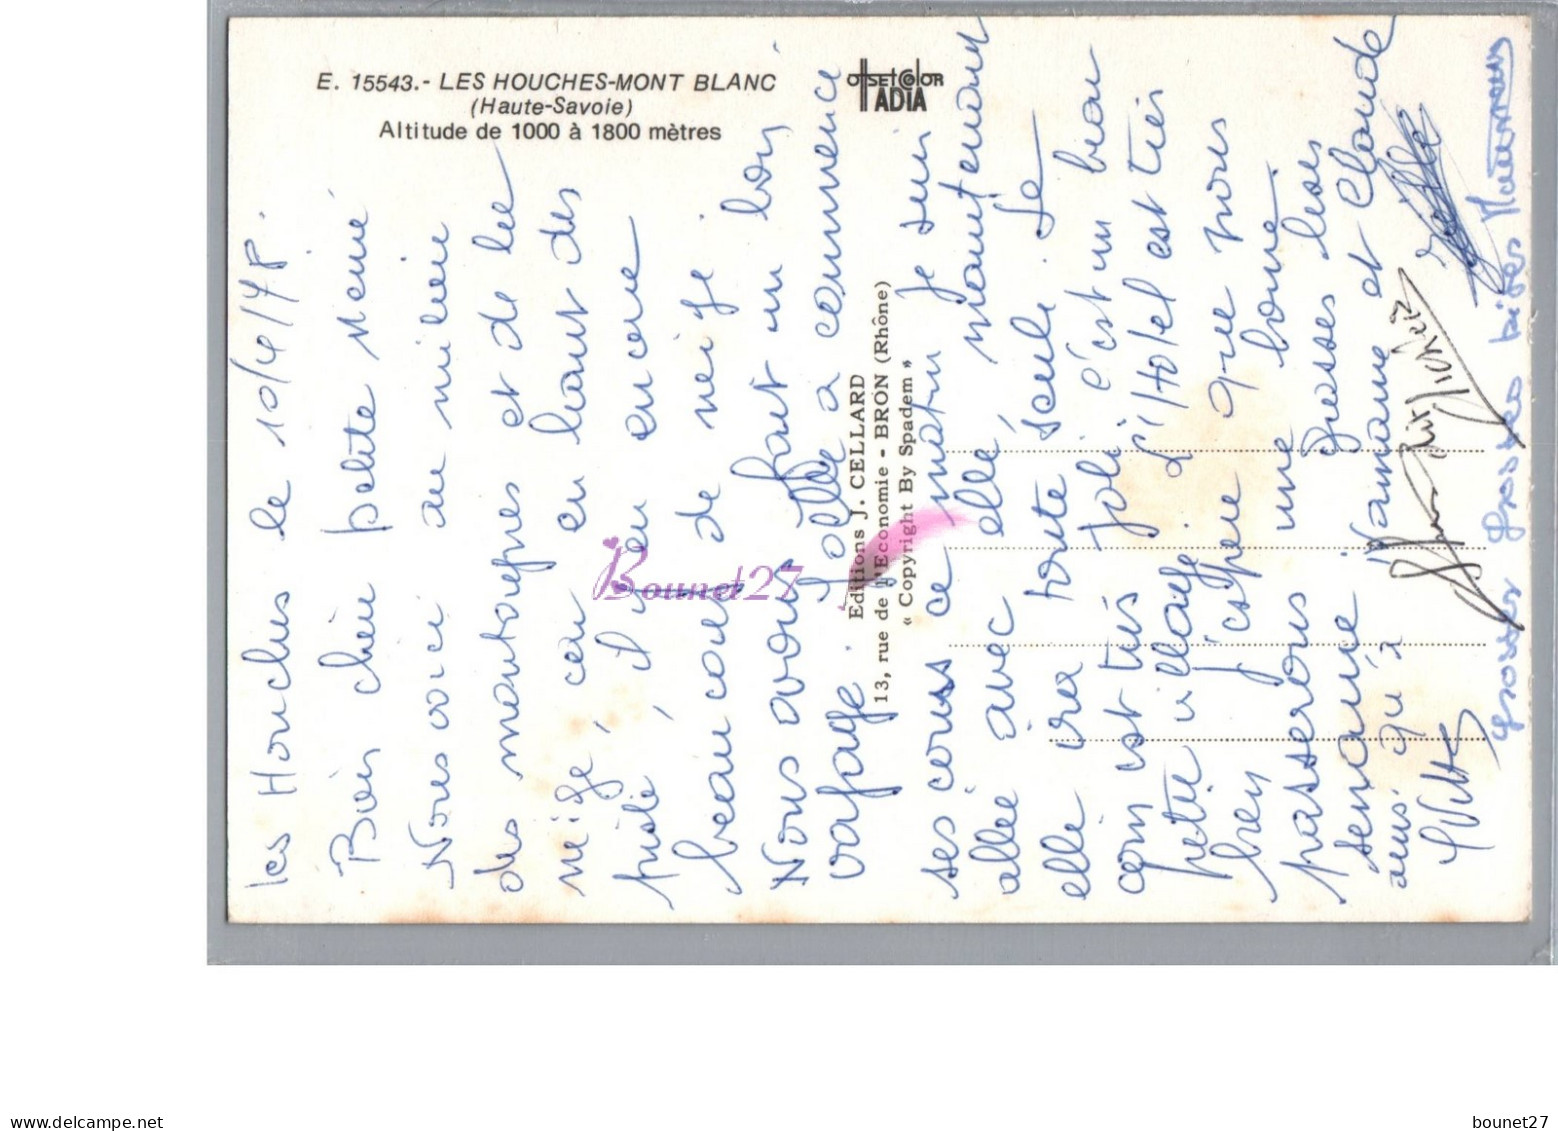 E. 15543.- LES HOUCHES-MONT BLANC
(Haute-Savoie)
Altitude de 1000 à 1800 mètres
OFFSETCOLOR
IADIA
Editions J. CELLARD
13, rue de l'Economie - BRON (Rhône)
« Copyright By Spadem »
les Houches le 10/4/78.
Bien chère petite Mémé
Nous voici au milieu
des montagnes et de la
neige, car en haut des
piste, il y en encore
beaucoup de neige
Nous avons fait un bon
voyage. Joëlle a commencé
ses cours ce matin je suis
allée avec elle, maintenant
elle ira toute seule. Le
coin est très joli c'est un beau
petit village. L'Hotel est très
bien j'espère que nous
passerons une bonne
semaine Grosses bises
ainsi qu'à Maman et Claude
Yvette
Joëlle
Grosses grosses bises
Bounet27
delcampe.net
bounet27